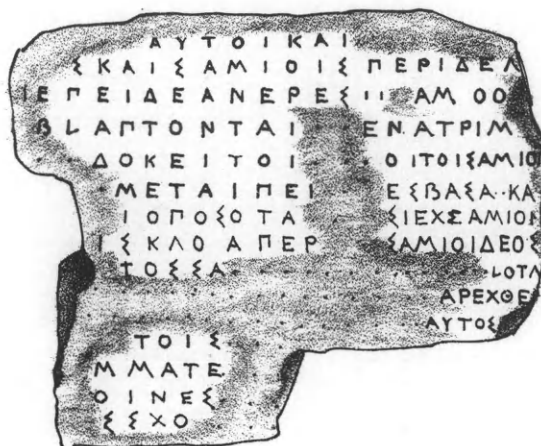 ΑΥΤΟΙΚΑΙ
ΣΚΑΙΣΑΜΙΟΙΣΠΕΡΙΔΕΛ
ΙΕΠΕΙΔΕΑΝΕΡΕΣΙΙ ΑΜ ΟΟ
ΒLΑΠΤΟΝΤΑΙ ΕΝΑΤΡΙΜ
ΔΟΚΕΙΤΟΙ ΟΙΤΟΙΣΑΜΙΟ
ΜΕΤΑΙΠΕΙ ΕΣΒΑΣΑ··ΚΑ
ΙΟΠΟΣΟΤΑ ΣΙΕΧΣΑΜΙΟΙ
ΙΣΚΛΟΑΠΕΡ ΣΑΜΙΟΙΔΕΟΣ
ΤΟΣΣΑ LΟΤΛ
ΑΡΕΧΘΕ
ΑΥΤΟΣ
ΤΟΙΣ
ΜΜΑΤΕ
ΟΙΝΕΣ
ΣΣΧΟ